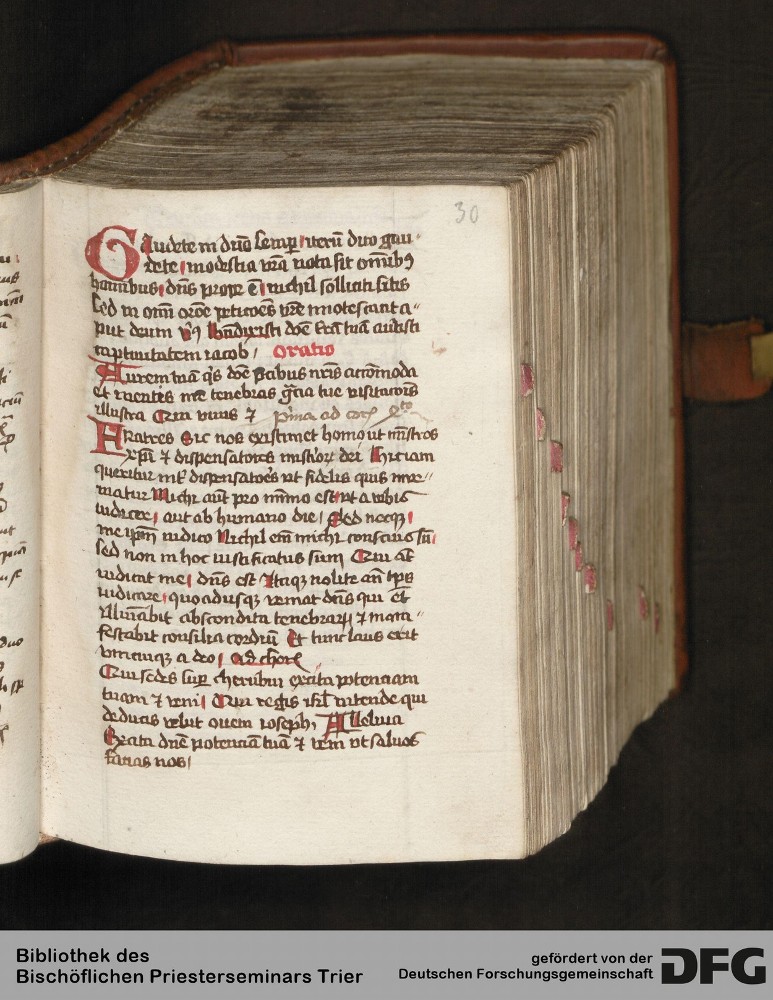 30
Gaudete in dño semp iterū dico gau
dete modestia vrā nota sit om̄ibꝯ
hominibus dn̄s prope ē nichil solliciti sitis
Sed in om̄i oroē peticōēs vrē innotescant a-
put deum v̓ꝯ Bn̄dixisti doē t̓rā tuā auͥsti
captiuitatem iacob Oratio
Aurem tuā q̄s doē p̱cibus nrīs accōmoda
et mentis nrē tenebras gr̄cia tue visitacōīs
illustra Qui viuis ⁊ p̓ma ad cor̄ q̓to
Fratres Sic nos existimet homo ut mīstros
xp̄i ⁊ dispensatores mist̓ior̄ dei Hic iam
queritur int̓ dispensatoēs vt fidelis quis inue-
niatur Michi aut̄ pro minimo est vt a vobis
iudicer aut ab humano die Sed neqꝫ
me ip̄m iudico Nichil em̄ michi conscius sū
sed non in hoc iustificatus sum Qui at̄
iudicat me dn̄s est Itaqꝫ nolite an̄ tp̄s
iudicare quoadusqꝫ veniat dn̄s qui et̄
illuīabit abscondita tenebrarꝝ ⁊ mani-
festabit consilia cordiū Et tunc laus erit
vnicuiqꝫ a deo
Qui sedes sup̱ cherubin excita potenciam
tuam ⁊ veni Qui regis isrl̄ intende qui
deducis velut ouem ioseph Alleluia
Excita dn̄e potenciā tuā ⁊ veni vt saluos
facias nos
Bibliothek des
Bischöflichen Priesterseminars Trier
gefördert von der
Deutschen Forschungsgemeinschaft DFG